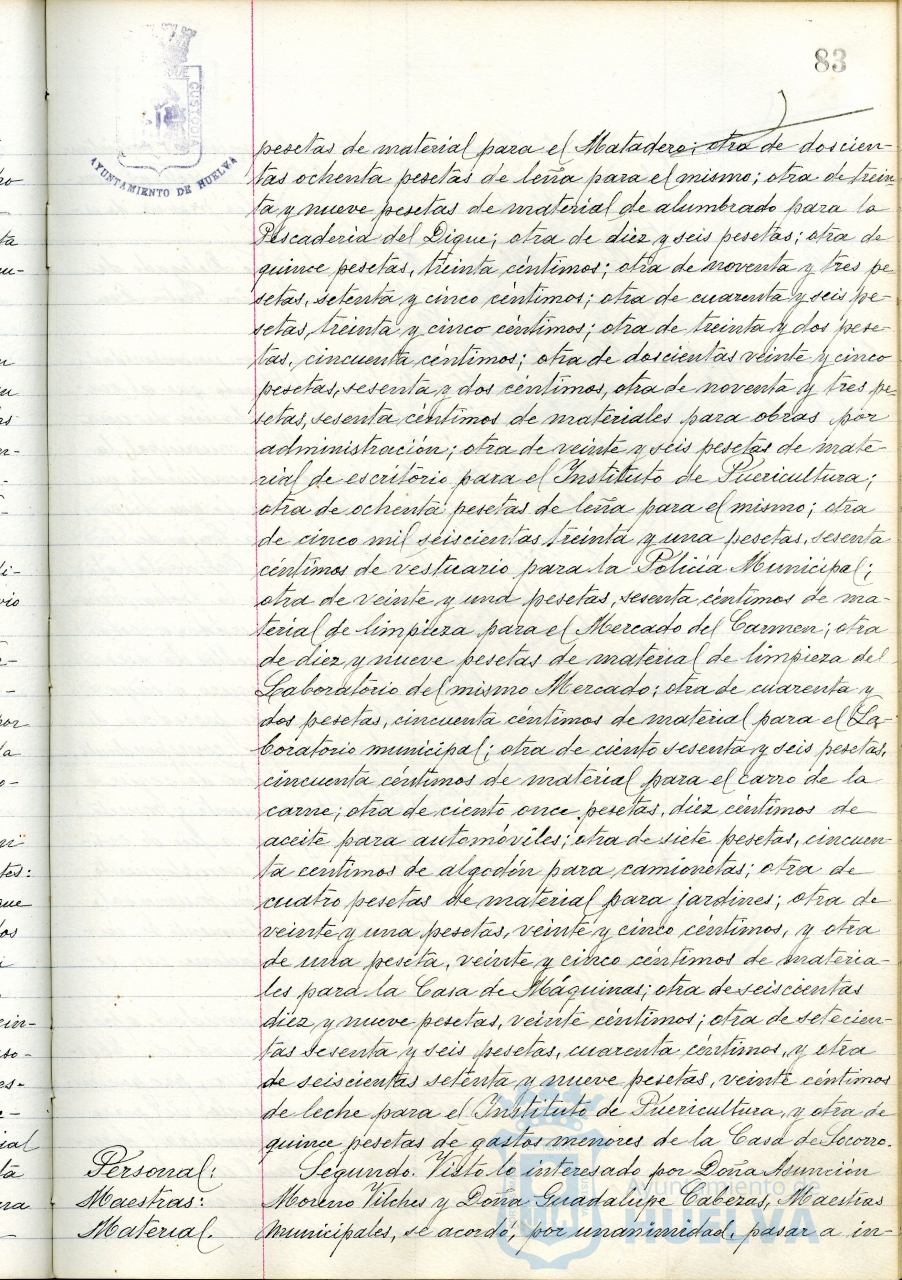 83
PORTUS
CUSTODIA
AYUNTAMIENTO DE HUELVA
pesetas de material para el Matadero; otra de doscien-
tas ochenta pesetas de leña para el mismo; otra de trein-
ta y nueve pesetas de material de alumbrado para la
Pescaderia del Dique; otra de diez y seis pesetas; otra de
quince pesetas, treinta céntimos; otra de noventa y tres pe
setas, setenta y cinco céntimos; otra de cuarenta y seis pe-
setas, treinta y cinco céntimos; otra de treinta y dos pese-
tas, cincuenta céntimos; otra de doscientas veinte y cinco
pesetas, sesenta y dos céntimos, otra de noventa y tres pe-
setas, sesenta céntimos de materiales para obras por
administración; otra de veinte y seis pesetas de mate-
rial de escritorio para el Instituto de Puericultura;
otra de ochenta pesetas de leña para el mismo; otra
de cinco mil seiscientas treinta y una pesetas, sesenta
céntimos de vestuario para la Policía Municipal;
otra de veinte y una pesetas, sesenta céntimos de ma-
terial de limpieza para el Mercado del Carmen; otra
de diez y nueve pesetas de material de limpieza del
Laboratorio del mismo Mercado; otra de cuarenta y
dos pesetas, cincuenta céntimos de material para el La-
boratorio municipal; otra de ciento sesenta y seis pesetas,
cincuenta céntimos de material para el carro de la
carne; otra de ciento once pesetas, diez céntimos de
aceite para automóviles; otra de siete pesetas, cincuen-
ta centimos de algodón para camionetas; otra de
cuatro pesetas de material para jardines; otra de
veinte y una pesetas, veinte y cinco céntimos, y otra
de una peseta, veinte y cinco céntimos de materia-
les para la Casa de Máquinas; otra de seiscientas
diez y nueve pesetas, veinte céntimos; otra de setecien-
tas sesenta y seis pesetas, cuarenta céntimos, y otra
de seiscientas setenta y nueve pesetas, veinte céntimos
de leche para el Instituto de Puericultura, y otra de
quince pesetas de gastos menores de la Casa de Socorro.
Personal: Segundo. Visto lo interesado por Doña Asunción
Maestras: Moreno Vilches y Doña Guadalupe Caberas, Maestras
Material. Municipales, se acordó, por unanimidad, pasar a in-
Ayuntamiento de
HUELVA